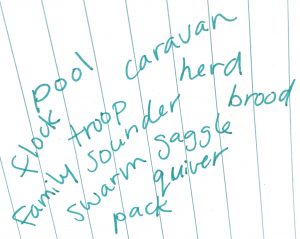 pool caravan
flock troop herd
family sounder brood
swarm gaggle
quiver
pack